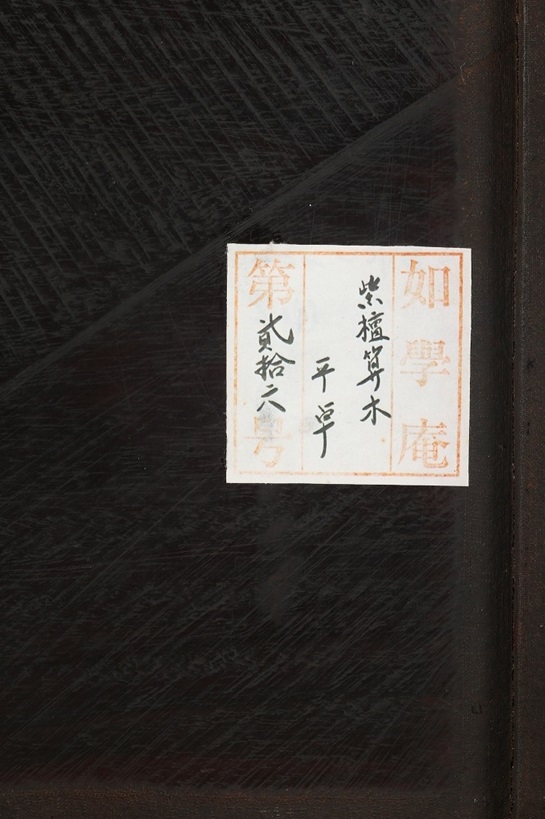 如學庵
紫檀算木
平卓
第貳拾六号